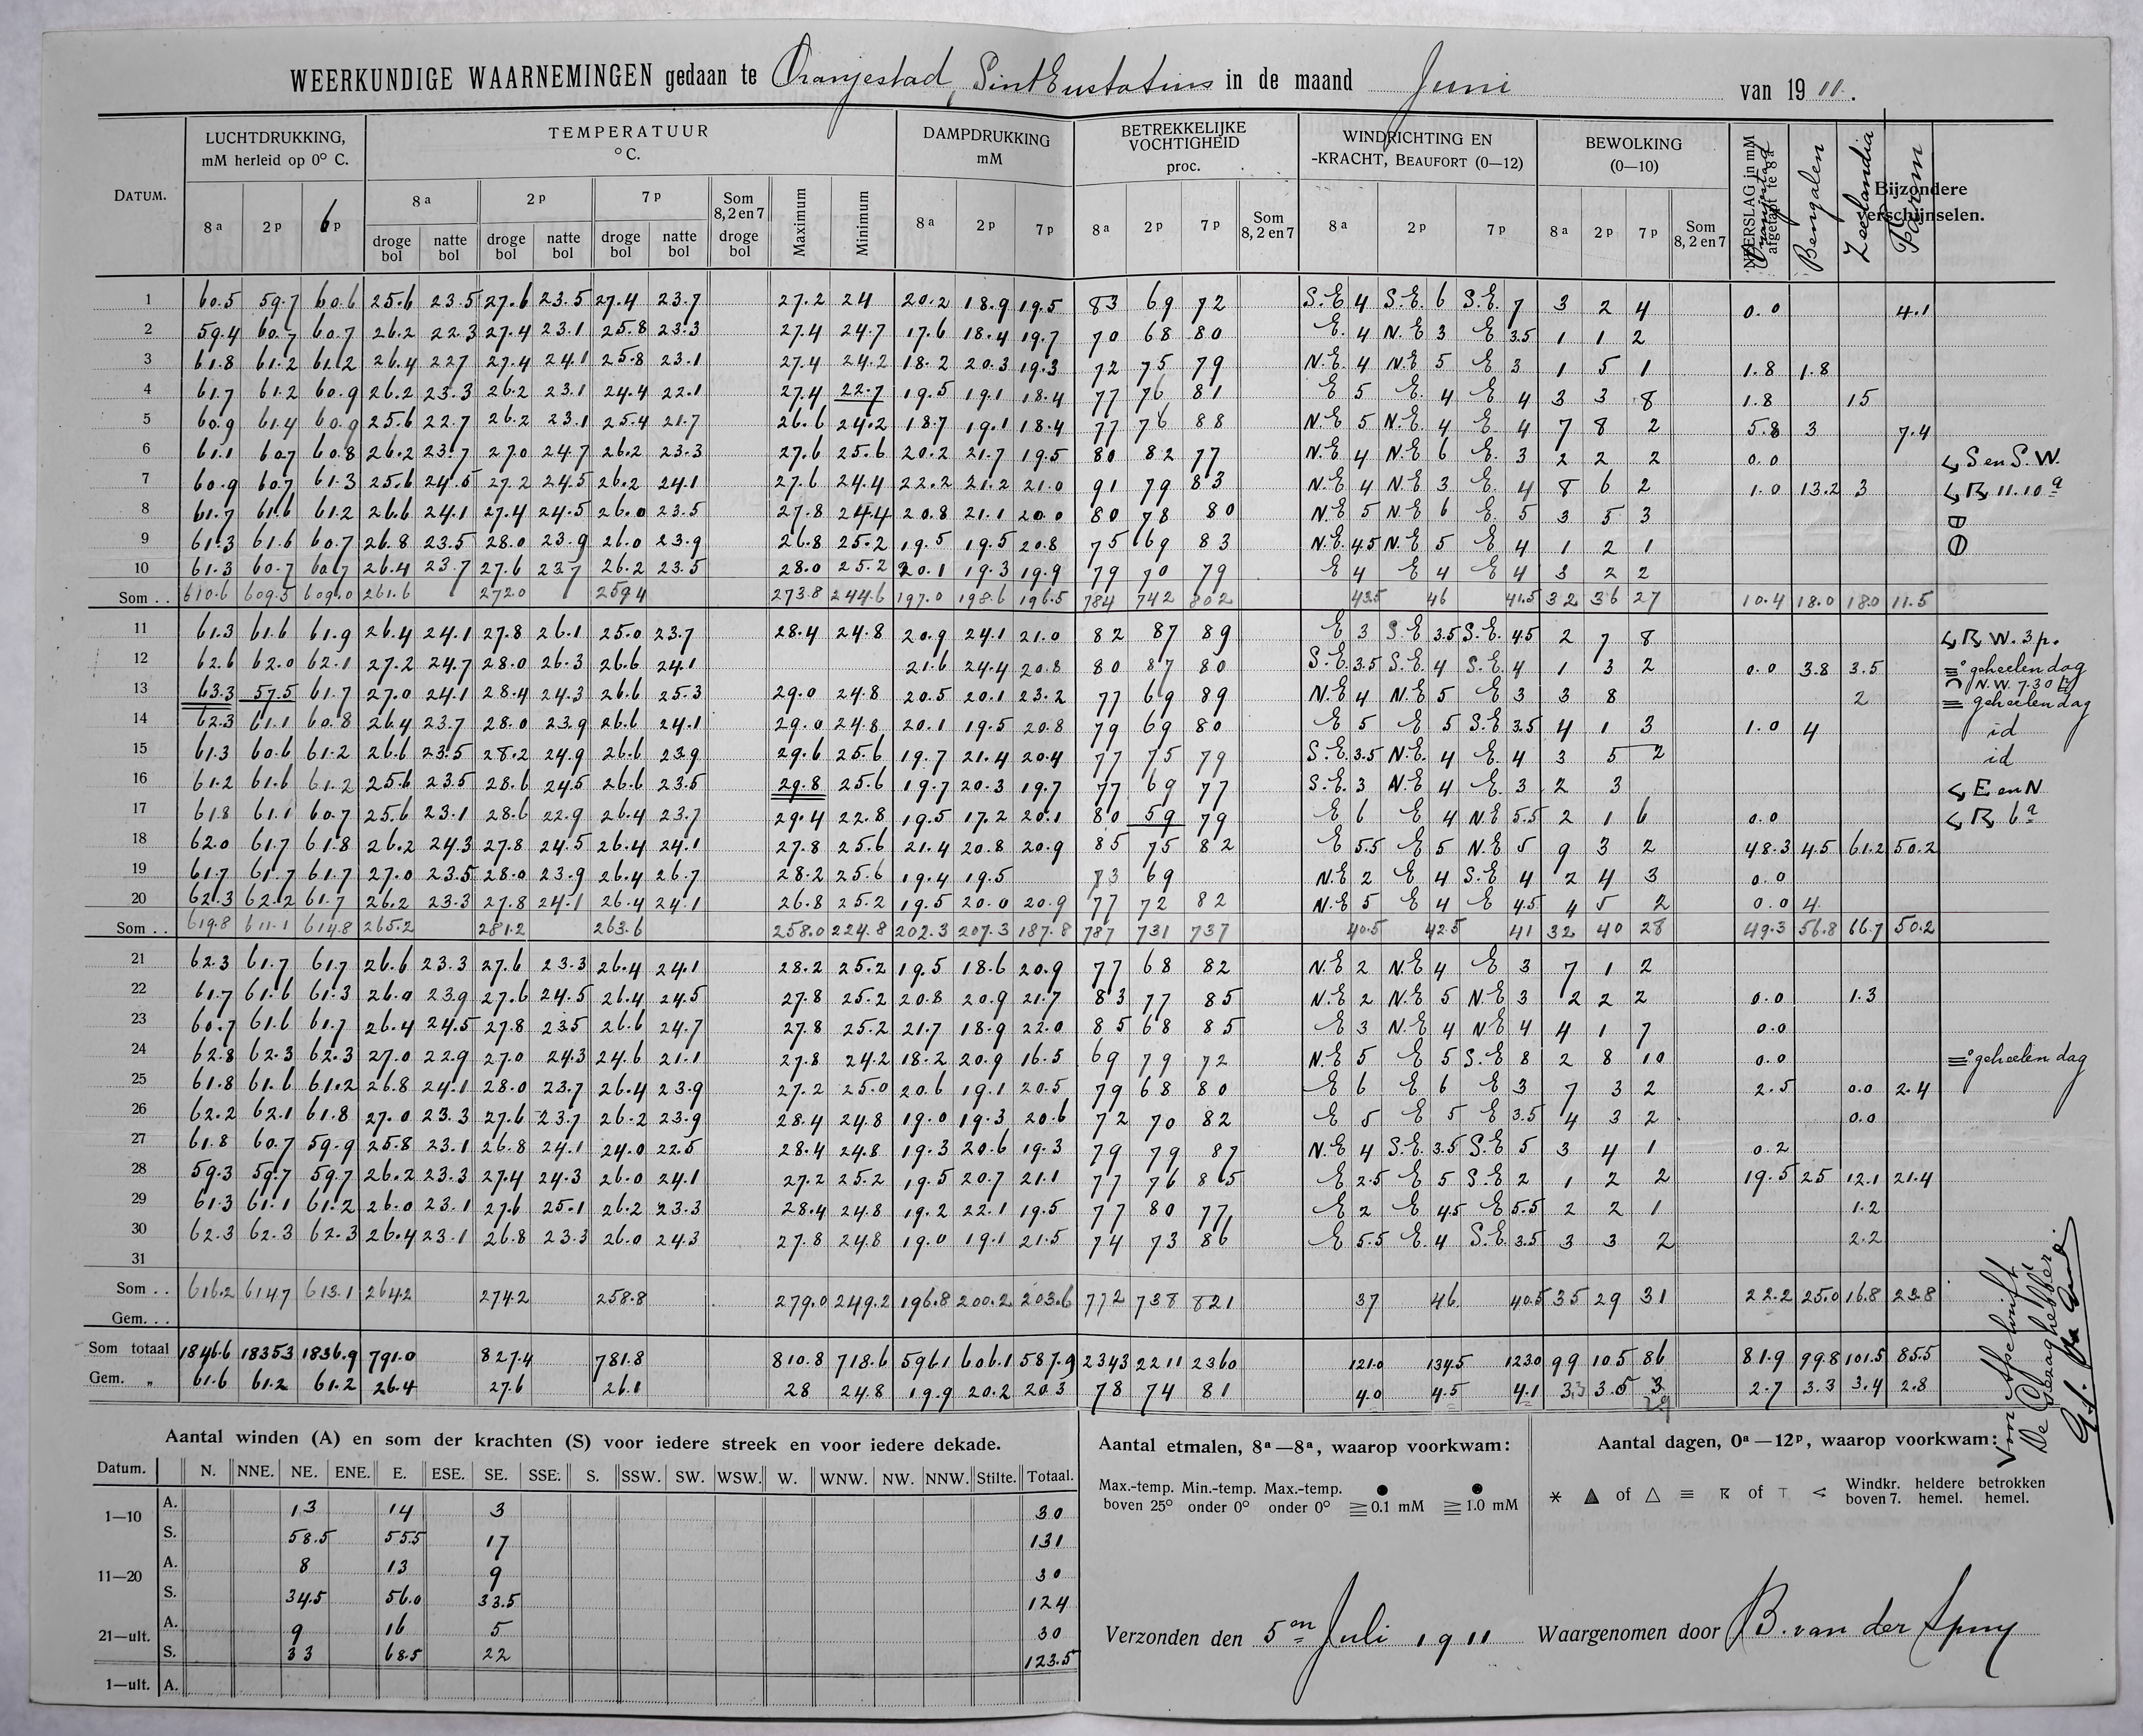 WEERKUNDIGE WAARNEMINGEN gedaan te Oranjestad, Sint Eustatius in de maand Juni van 1911.
DATUM. LUCHTDRUKKING, mM herleid op 0° C. TEMPERATUUR °C. DAMPDRUKKING mM BETREKKELIJKE VOCHTIGHEID proc. WINDRICHTING EN -KRACHT, BEAUFORT (0—12) BEWOLKING (0—10) NEERSLAG in mM afgetapt te 8a Oranjestad Bengalen Zeelandia Farm Bijzondere verschijnselen.
8a 2p 6p 8a 2p 7p Som 8, 2 en 7 Maximum Minimum 8a 2p 7p 8a 2p 7p Som 8, 2 en 7 8a 2p 7p 8a 2p 7p Som 8, 2 en 7
droge bol natte bol droge bol natte bol droge bol natte bol droge bol
1 60.5 59.7 60.6 25.6 23.5 27.6 23.5 27.4 23.7 27.2 24 20.2 18.9 19.5 83 69 72 S.E 4 S.E. 6 S.E. 7 3 2 4 0.0 4.1
2 59.4 60.7 60.7 26.2 22.3 27.4 23.1 25.8 23.3 27.4 24.7 17.6 18.4 19.7 70 68 80 E. 4 N.E 3 E 3.5 1 1 2
3 61.8 61.2 61.2 26.4 227 27.4 24.1 25.8 23.1 27.4 24.2 18.2 20.3 19.3 72 75 79 N.E 4 N.E 5 E 3 1 5 1 1.8 1.8
4 61.7 61.2 60.9 26.2 23.3 26.2 23.1 24.4 22.1 27.4 22.7 19.5 19.1 18.4 77 76 81 E 5 E. 4 E 4 3 3 8 1.8 15
5 60.9 61.4 60.9 25.6 22.7 26.2 23.1 25.4 21.7 26.6 24.2 18.7 19.1 18.4 77 76 88 N.E 5 N.E 4 E 4 7 8 2 5.8 3 7.4
6 61.1 607 60.8 26.2 23.7 27.0 24.7 26.2 23.3 27.6 25.6 20.2 21.7 19.5 80 82 77 N.E 4 N.E 6 E. 3 2 2 2 0.0 S en S.W.
7 60.9 60.7 61.3 25.6 24.5 27.2 24.5 26.2 24.1 27.6 24.4 22.2 21.2 21.0 91 79 83 N.E 4 N.E 3 E. 4 8 6 2 1.0 13.2 3 11.10a
8 61.7 61.6 61.2 26.6 24.1 27.4 24.5 26.0 23.5 27.8 24.4 20.8 21.1 20.0 80 78 80 N.E 5 N.E 6 E. 5 3 5 3
9 61.3 61.6 60.7 26.8 23.5 28.0 23.9 26.0 23.9 26.8 25.2 19.5 19.5 20.8 75 69 83 N.E. 45 N.E 5 E 4 1 2 1
10 61.3 60.7 60.7 26.4 23.7 27.6 237 26.2 23.5 28.0 25.2 20.1 19.3 19.9 79 70 79 E 4 E 4 E 4 3 2 2
Som . . 610.6 609.5 609.0 261.6 272.0 259.4 273.8 244.6 197.0 198.6 196.5 784 742 802 42.5 46 41.5 32 36 27 10.4 18.0 18.0 11.5
11 61.3 61.6 61.9 26.4 24.1 27.8 26.1 25.0 23.7 28.4 24.8 20.9 24.1 21.0 82 87 89 E 3 S.E 3.5 S.E. 45 2 7 8 W. 3p.
12 62.6 62.0 62.1 27.2 24.7 28.0 26.3 26.6 24.1 21.6 24.4 20.8 80 87 80 S.E. 3.5 S.E. 4 S.E. 4 1 3 2 0.0 3.8 3.5 ≡° geheelen dag
N.W. 7.30
13 63.3 57.5 61.7 27.0 24.1 28.4 24.3 26.6 25.3 29.0 24.8 20.5 20.1 23.2 77 69 89 N.E 4 N.E 5 E 3 3 8 2 ≡ geheelen dag
14 62.3 61.1 60.8 26.4 23.7 28.0 23.9 26.6 24.1 29.0 24.8 20.1 19.5 20.8 79 69 80 E 5 E 5 S.E 3.5 4 1 3 1.0 4 id
15 61.3 60.6 61.2 26.6 23.5 28.2 24.9 26.6 23.9 29.6 25.6 19.7 21.4 20.4 77 75 79 S.E. 3.5 N.E. 4 E. 4 3 5 2 id
16 61.2 61.6 61.2 25.6 23.5 28.6 24.5 26.6 23.5 29.8 25.6 19.7 20.3 19.7 77 69 77 S.E. 3 N.E 4 E. 3 2 3 E en N
17 61.8 61.1 60.7 25.6 23.1 28.6 22.9 26.4 23.7 29.4 22.8 19.5 17.2 20.1 80 59 79 E 6 E 4 N.E 5.5 2 1 6 0.0 6a
18 62.0 61.7 61.8 26.2 24.3 27.8 24.5 26.4 24.1 27.8 25.6 21.4 20.8 20.9 85 75 82 E 5.5 E 5 N.E 5 9 3 2 48.3 45 61.2 50.2
19 61.7 61.7 61.7 27.0 23.5 28.0 23.9 26.4 26.7 28.2 25.6 19.4 19.5 73 69 N.E 2 E 4 S.E 4 2 4 3 0.0
20 62.3 62.2 61.7 26.2 23.3 27.8 24.1 26.4 24.1 26.8 25.2 19.5 20.0 20.9 77 72 82 N.E 5 E 4 E 4.5 4 5 2 0.0 4
Som . . 619.8 611.1 614.8 265.2 281.2 263.6 258.0 224.8 202.3 207.3 187.8 787 731 737 40.5 42.5 41 32 40 28 49.3 56.8 66.7 50.2
21 62.3 61.7 61.7 26.6 23.3 27.6 23.3 26.4 24.1 28.2 25.2 19.5 18.6 20.9 77 68 82 N.E 2 N.E 4 E 3 7 1 2
22 61.7 61.6 61.3 26.0 23.9 27.6 24.5 26.4 24.5 27.8 25.2 20.8 20.9 21.7 83 77 85 N.E 2 N.E 5 N.E 3 2 2 2 0.0 1.3
23 60.7 61.6 61.7 26.4 24.5 27.8 235 26.6 24.7 27.8 25.2 21.7 18.9 22.0 85 68 85 E 3 N.E 4 N.E 4 4 1 7 0.0
24 62.8 62.3 62.3 27.0 22.9 27.0 24.3 24.6 21.1 27.8 24.2 18.2 20.9 16.5 69 79 72 N.E 5 E 5 S.E 8 2 8 10 0.0 ≡° geheelen dag
25 61.8 61.6 61.2 26.8 24.1 28.0 23.7 26.4 23.9 27.2 25.0 20.6 19.1 20.5 79 68 80 E 6 E 6 E 3 7 3 2 2.5 0.0 2.4
26 62.2 62.1 61.8 27.0 23.3 27.6 23.7 26.2 23.9 28.4 24.8 19.0 19.3 20.6 72 70 82 E 5 E 5 E 3.5 4 3 2 0.0
27 61.8 60.7 59.9 25.8 23.1 26.8 24.1 24.0 22.5 28.4 24.8 19.3 20.6 19.3 79 79 87 N.E 4 S.E. 3.5 S.E 5 3 4 1 0.2
28 59.3 59.7 59.7 26.2 23.3 27.4 24.3 26.0 24.1 27.2 25.2 19.5 20.7 21.1 77 76 85 E 2.5 E 5 S.E 2 1 2 2 19.5 25 12.1 21.4
29 61.3 61.1 61.2 26.0 23.1 27.6 25.1 26.2 23.3 28.4 24.8 19.2 22.1 19.5 77 80 77 E 2 E 45 E 5.5 2 2 1 1.2
30 62.3 62.3 62.3 26.4 23.1 26.8 23.3 26.0 24.3 27.8 24.8 19.0 19.1 21.5 74 73 86 E 5.5 E. 4 S.E. 3.5 3 3 2 2.2
31
Som . . 616.2 614.7 613.1 264.2 274.2 258.8 279.0 249.2 196.8 200.2 203.6 772 738 821 37 46. 40.5 35 29 31 22.2 25.0 16.8 23.8
Gem. . .
Som totaal 1846.6 1835.3 1836.9 791.0 827.4 781.8 810.8 718.6 596.1 606.1 587.9 2343 2211 2360 121.0 134.5 123.0 99 105 86 81.9 99.8 101.5 85.5
Gem. „ 61.6 61.2 61.2 26.4 27.6 26.1 28 24.8 19.9 20.2 20.3 78 74 81 4.0 4.5 4.1 3.3 3.5 3 2.7 3.3 3.4 2.8
2.9
Voor afschrift
De Gezaghebber
Aantal winden (A) en som der krachten (S) voor iedere streek en voor iedere dekade.
Datum. N. NNE. NE. ENE. E. ESE. SE. SSE. S. SSW. SW. WSW. W. WNW. NW. NNW. Stilte. Totaal.
1—10 A. 13 14 3 30
S. 58.5 55.5 17 131
11—20 A. 8 13 9 30
S. 34.5 56.0 33.5 124
21—ult. A. 9 16 5 30
S. 33 68.5 22 123.5
1—ult. A.
Aantal etmalen, 8a—8a, waarop voorkwam:
Max.-temp. boven 25° Min.-temp. onder 0° Max.-temp. onder 0° ● ≧ 0.1 mM ● ≧ 1.0 mM
Aantal dagen, 0a—12p, waarop voorkwam:
* ▲ of △ ≡ of < Windkr. boven 7. heldere hemel. betrokken hemel.
Verzonden den 5en Juli 1911 Waargenomen door B. van der Spuy